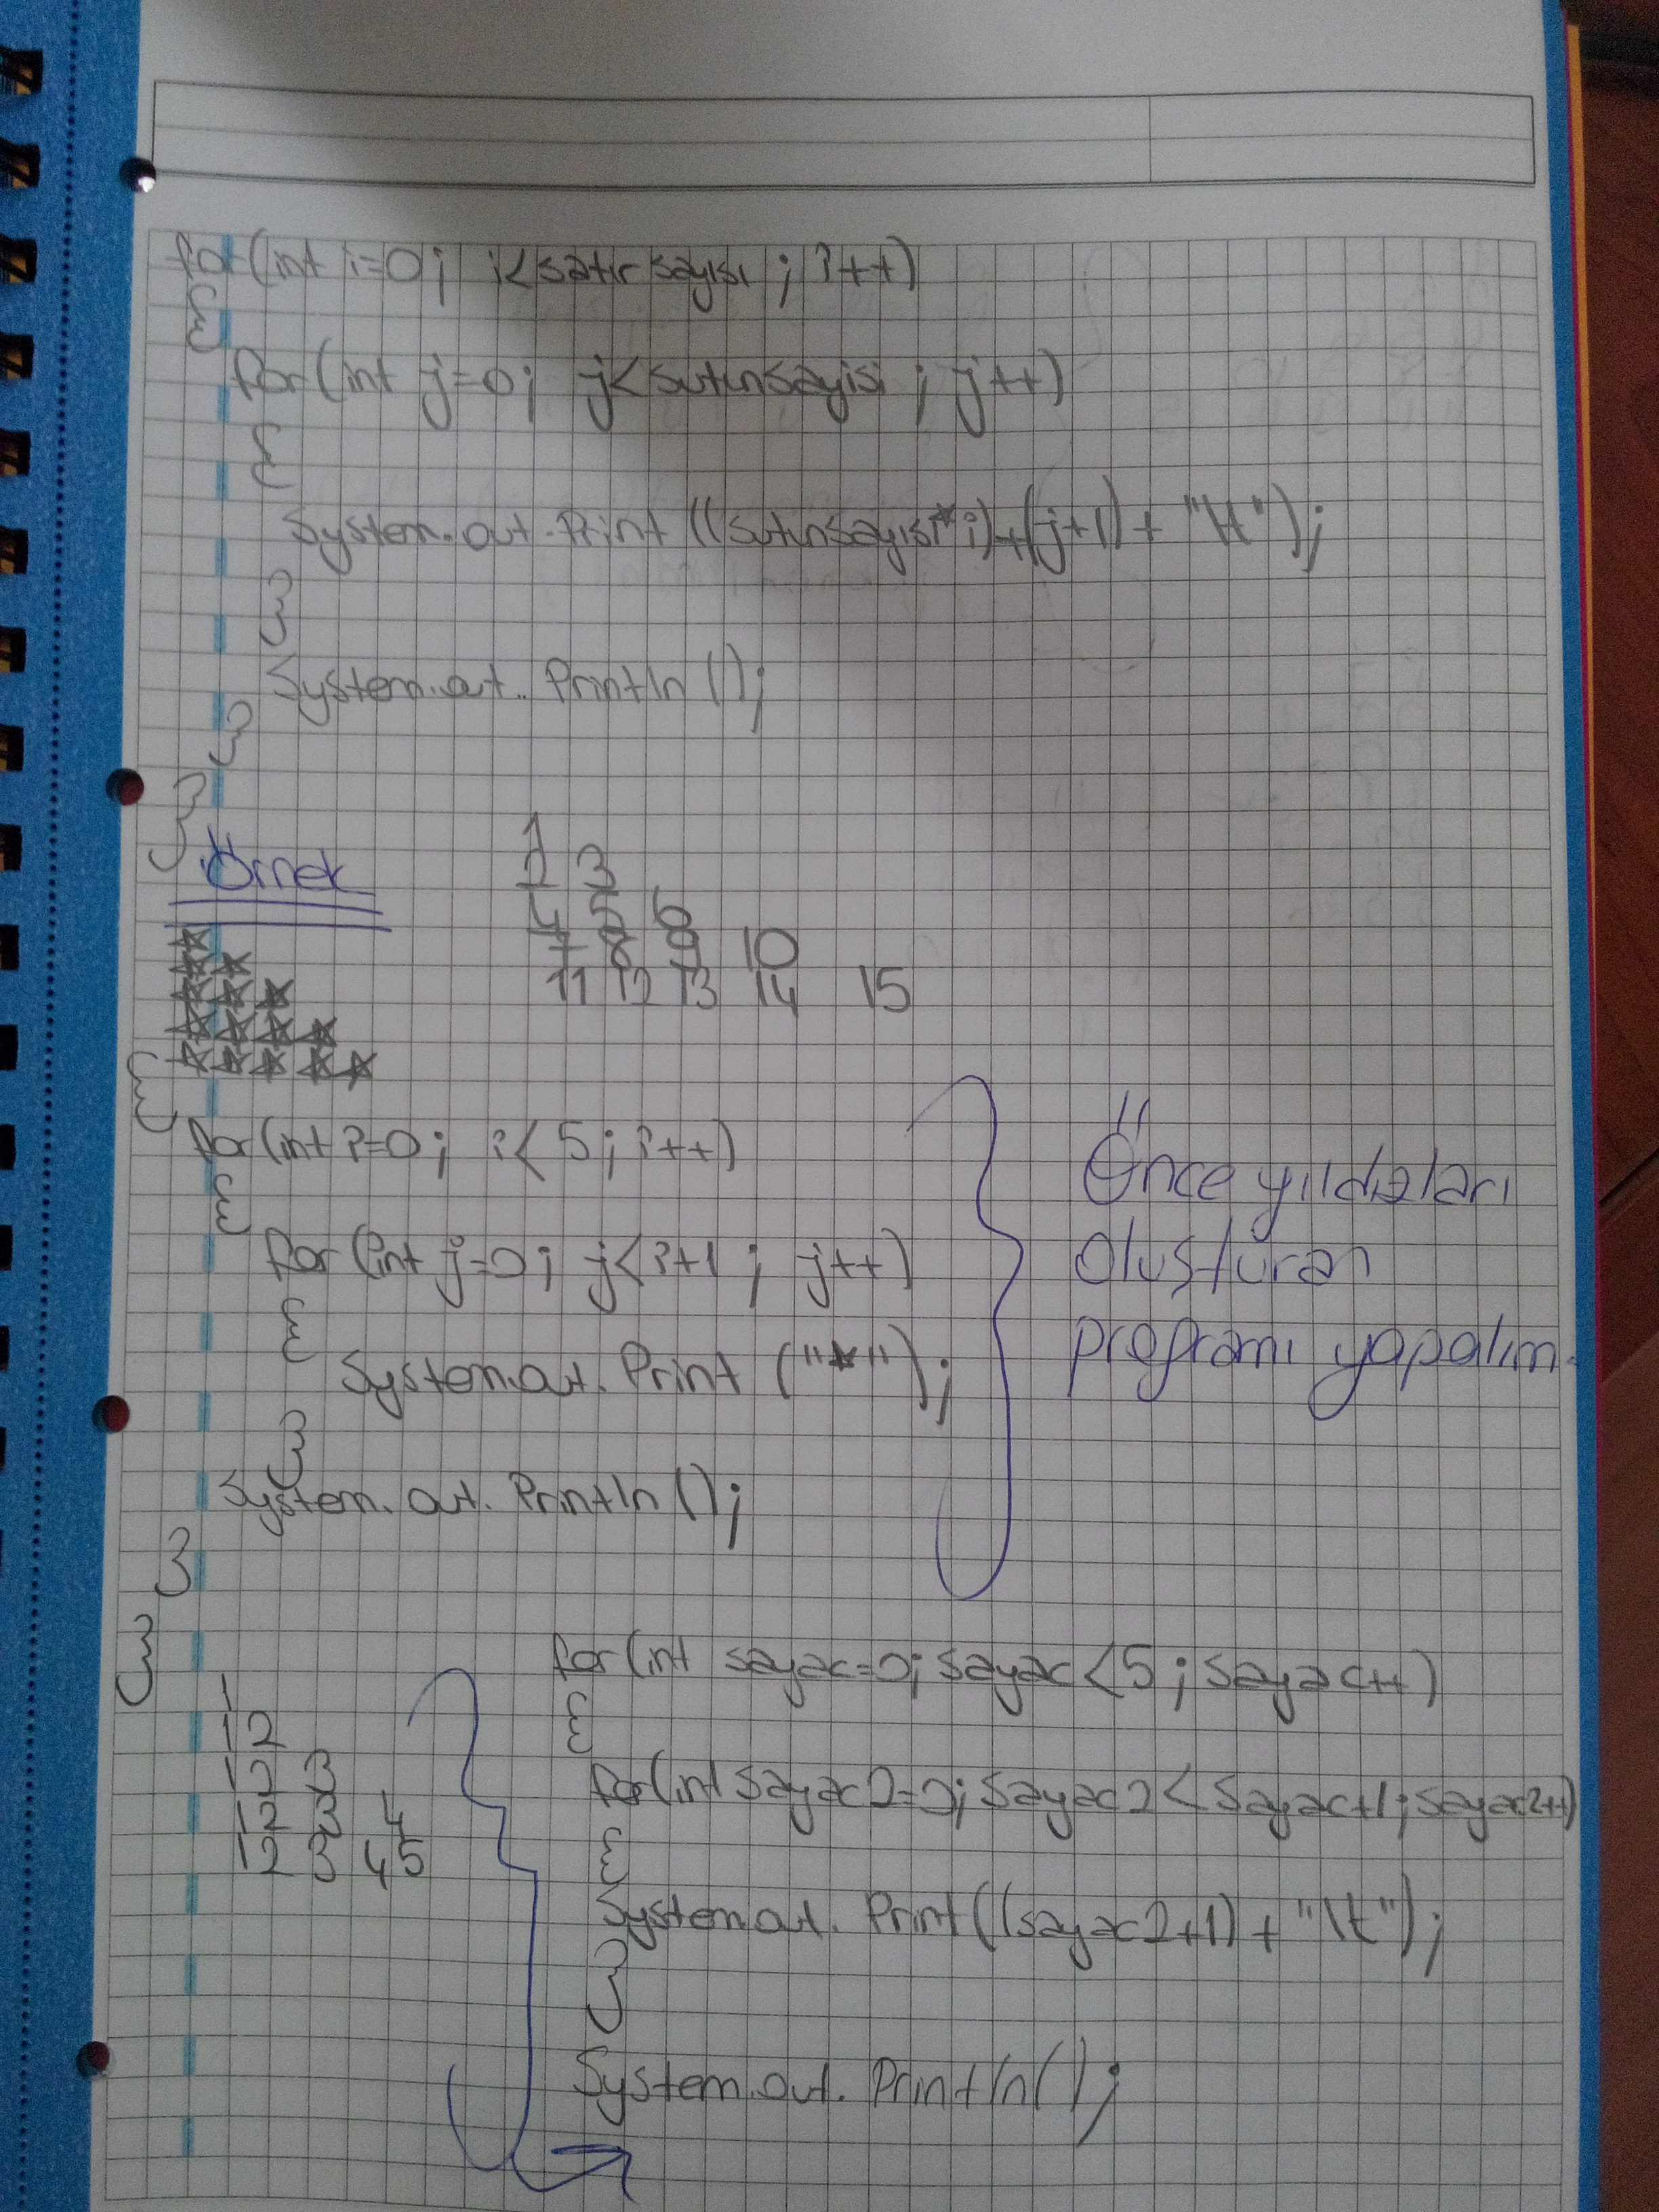 for(int i=0; i<satırsayısı; i++)
{
for(int j=0; j<sutunsayisi; j++)
{
System.out.Print((sutunsayısı*i)+(j+1)+"\t");
}
System.out.Println();
}
}
Örnek
1
2 3
4 5 6
7 8 9 10
11 12 13 14 15
*
* *
* * *
* * * *
* * * * *
{
for(int i=0; i<5; i++)
{
for(int j=0; j<i+1; j++)
{
System.out.Print("*");
}
System.out.Println();
}
}
Önce yıldızları
oluşturan
programı yapalım.
1
1 2
1 2 3
1 2 3 4
1 2 3 4 5
for(int sayac=0; sayac<5; sayac++)
{
for(int sayac2=0; sayac2<sayac+1; sayac2++)
{
System.out.Print((sayac2+1)+"\t");
}
System.out.Println();